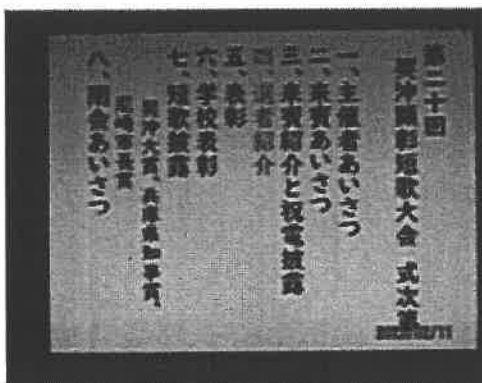 第二十回
契沖顕彰短歌大会 式次第
一、主催者あいさつ
二、来賓あいさつ
三、来賓紹介と祝電披露
四、選者紹介
五、表彰
六、学校表彰
七、短歌披露
契沖大賞、兵庫県知事賞、
尼崎市長賞
八、閉会あいさつ